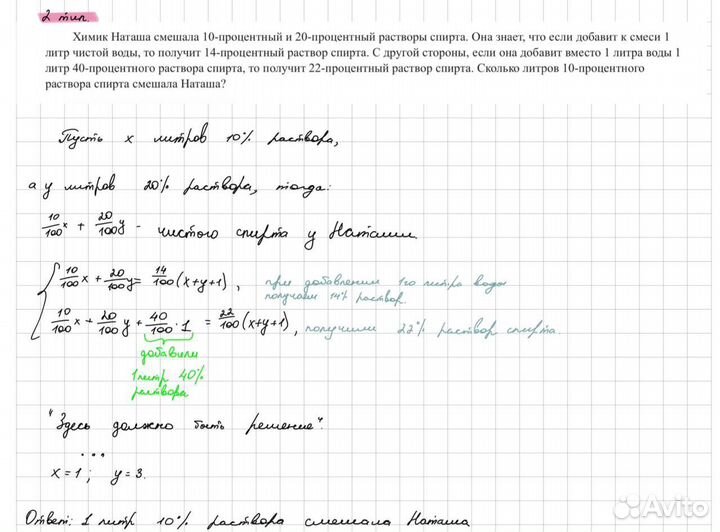 2 тип.
Химик Наташа смешала 10-процентный и 20-процентный растворы спирта. Она знает, что если добавит к смеси 1
литр чистой воды, то получит 14-процентный раствор спирта. С другой стороны, если она добавит вместо 1 литра воды 1
литр 40-процентного раствора спирта, то получит 22-процентный раствор спирта. Сколько литров 10-процентного
раствора спирта смешала Наташа?
Пусть x литров 10% раствора,
а y литров 20% раствора, тогда:
10/100 x + 20/100 y - чистого спирта у Наташи.
10/100 x + 20/100 y = 14/100 (x+y+1), при добавлении 1го литра воды
получаем 14% раствор.
10/100 x + 20/100 y + 40/100 · 1 = 22/100 (x+y+1), получили 22% раствор спирта.
добавили
1 литр 40%
раствора
"Здесь должно быть решение".
...
x=1; y=3.
Ответ: 1 литр 10% раствора смешала Наташа
Avito